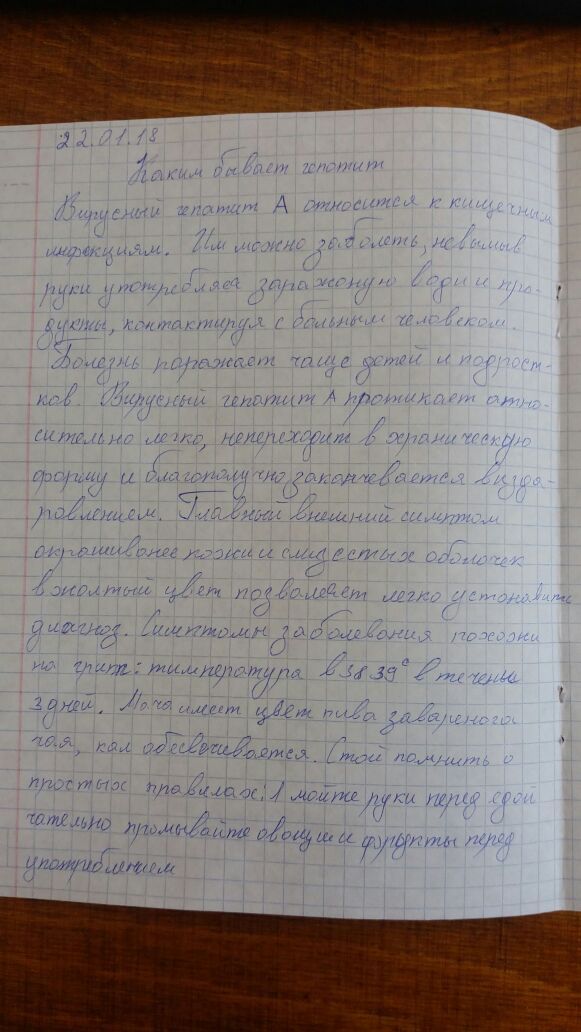 22.01.18
Каким бывает гепотит
Вирусный гепатит А относится к кищечным
инфекциям. Им можно заболеть, невымыв
руки употребляеа заражоную води и про-
дукты, контактируя с больным человеком.
Болезнь поражает чаще детей и подрост-
ков. Вирусный гепатит А протикает атно-
сительно легко, непереходит в храническую
форму и благополучно закончевается визда-
ровлением. Главный внешний симптом
окрашиванее кожи и слизестых оболочек
в жолтый цвет позволеет легко устонавить
диагноз. Симптомы заболевания похожи
на грип: тимпература в 38 39° в течены
3 дней. Моча имеет цвет пива завареного
чая, кал обесвечивается. Стой помнить о
простых правилах: 1 мойте руки перед едой
чательно промывайте овощи и фрукты перед
употреблением